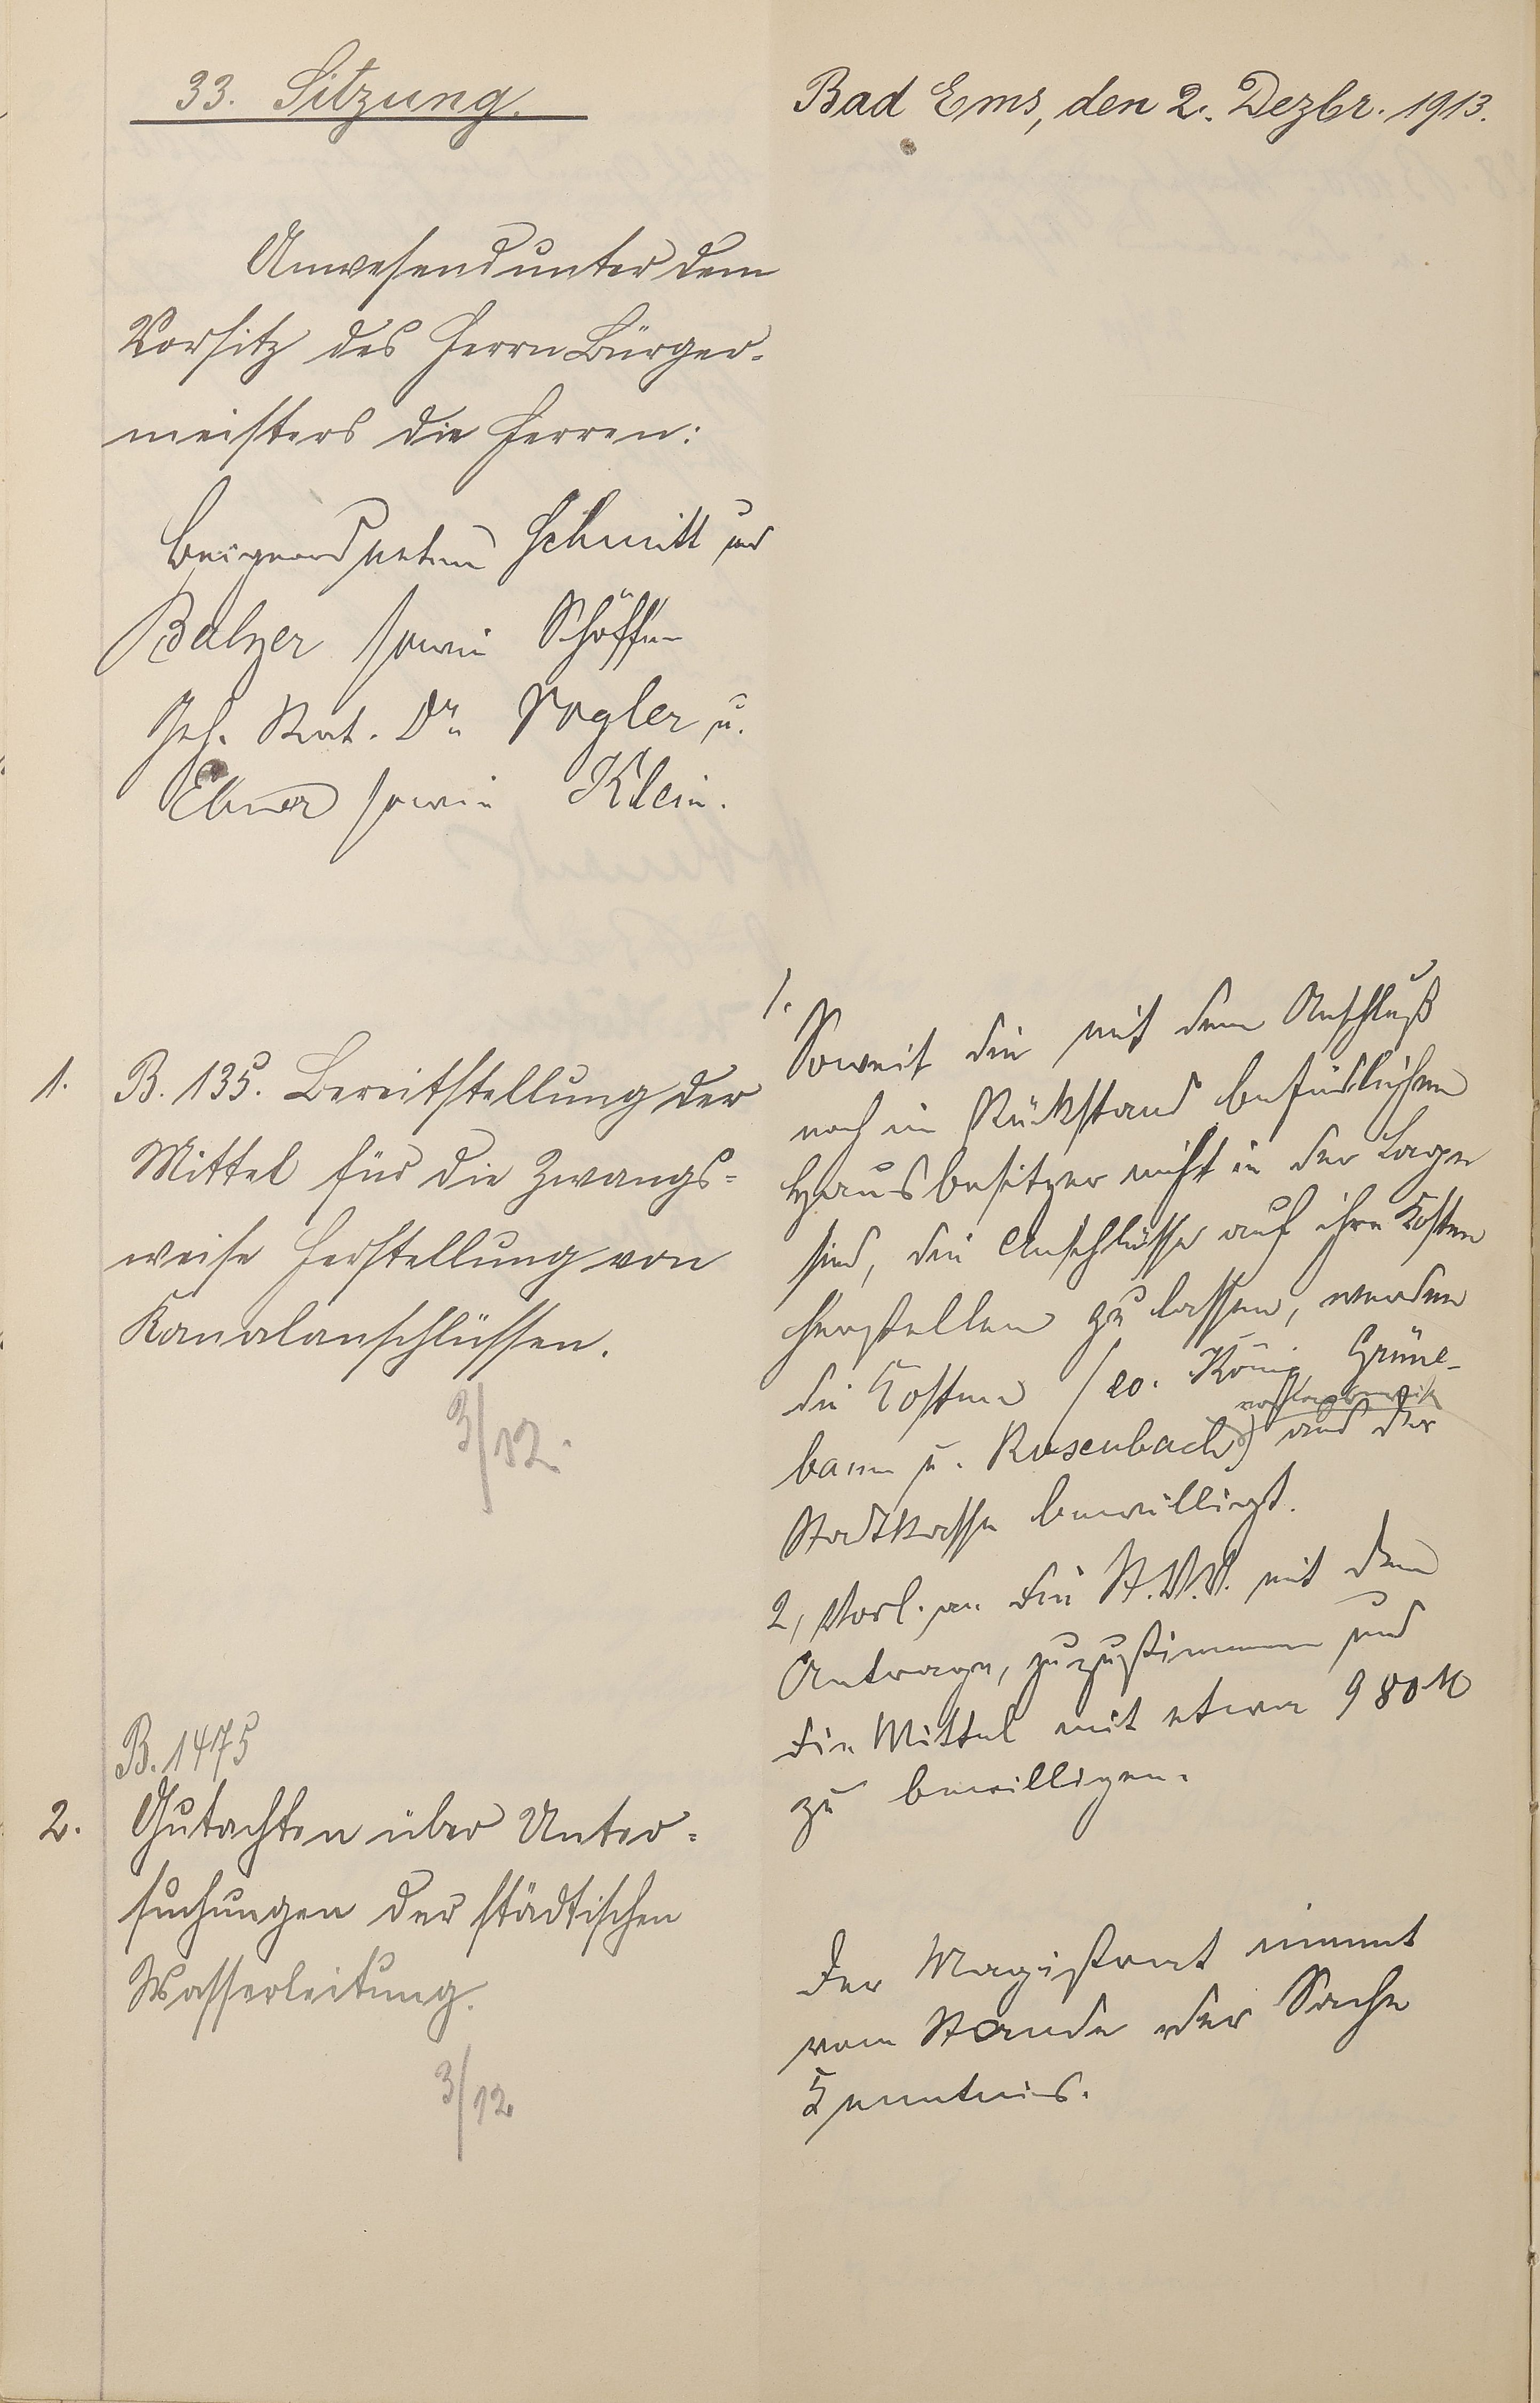 33. Sitzung.
Bad Ems, den 2. Dezbr. 1913.
Anwesend unter dem
Vorsitz des Herrn Bürger-
meisters die Herren:
Beigeordneten Schmitt und
Balzer sowie Schöffen
Geh. Rat. Dr. Vogler u.
Ebner sowie Klein.
1. B. 135. Bereitstellung der
Mittel für die Zwangs=
weise Herstellung von
Kanalanschlüssen.
3/12.
1.
Soweit die mit dem Anschluß
noch im Rückstand befindlichen
Hausbesitzer nicht in der Lage
sind, die Anschlüsse auf ihre Kosten
herstellen zu lassen, werden
die Kosten (co. König, Grüne-
baum u. Rosenbach) vorschußweise aus der
Stadtkasse bewilligt.
2, Vorl. an die St.V.V. mit dem
Antrage, zuzustimmen und
die Mittel mit etwa 980 M
zu bewilligen.
B. 1475
2. Gutachten über Unter=
suchungen der städtischen
Wasserleitung.
3/12
Der Magistrat nimmt
vom Stande der Sache
Kenntnis.